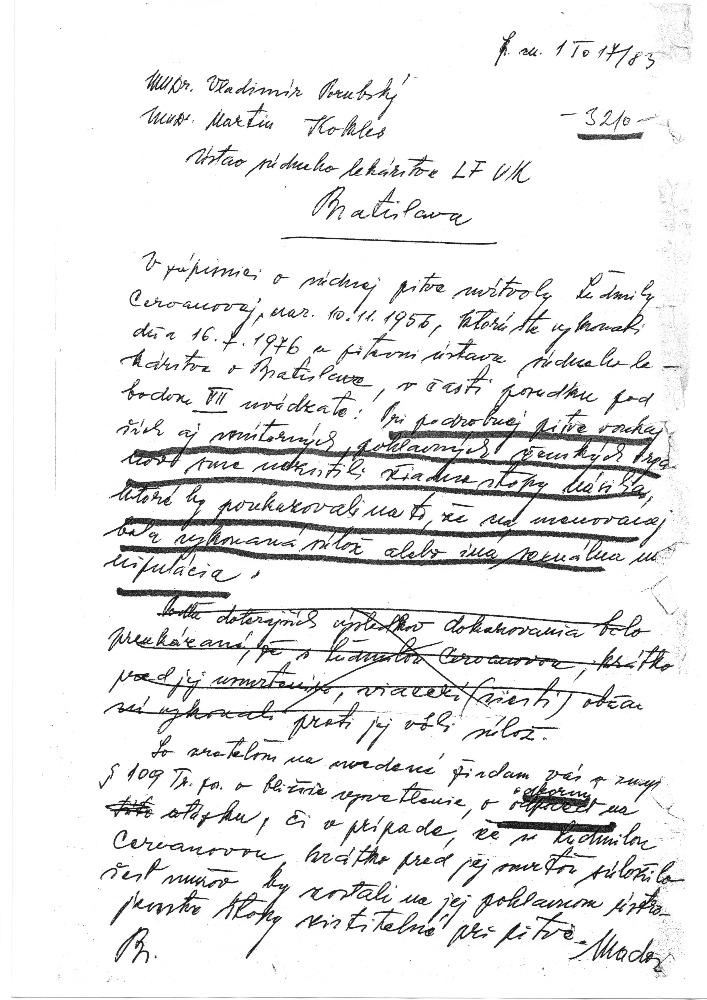 1 To 17/83
MUDr. Vladimír Porubský
MUDr. Martin Kokles
- 3210 -
Ústav súdneho lekárstva LF UK
Bratislava
V zápisnici o súdnej pitve mŕtvoly Ľudmily
Cervanovej, nar. 10.11.1956, ktorú ste vykonali
dňa 16.7.1976 v pitevni ústavu súdneho le
kárstva v Bratislave, v časti posudku pod
bodom VII uvádzate: Pri podrobnej pitve vonkaj
ších aj vnútorných pohlavných ženských orgá
nov sme nezistili žiadne stopy násilia,
ktoré by poukazovali na to, že na menovanej
bola vykonaná súlož alebo iná sexuálna ma
nipulácia.
Podľa doterajších výsledkov dokazovania bolo
preukázané, že s Ľudmilou Cervanovou, krátko
pred jej usmrtením, viacerí (šiesti) obžalo
vaní vykonali proti jej vôli súlož.
So zreteľom na uvedené žiadam vás v zmysle
§ 109 Tr. por. o bližšie vysvetlenie, o odbornú
na
otázku, či v prípade, že s Ľudmilou
Cervanovou, krátko pred jej smrťou súložilo
šesť mužov by zostali na jej pohlavnom ústro
jenstve stopy zistiteľné pri pitve.
Br.